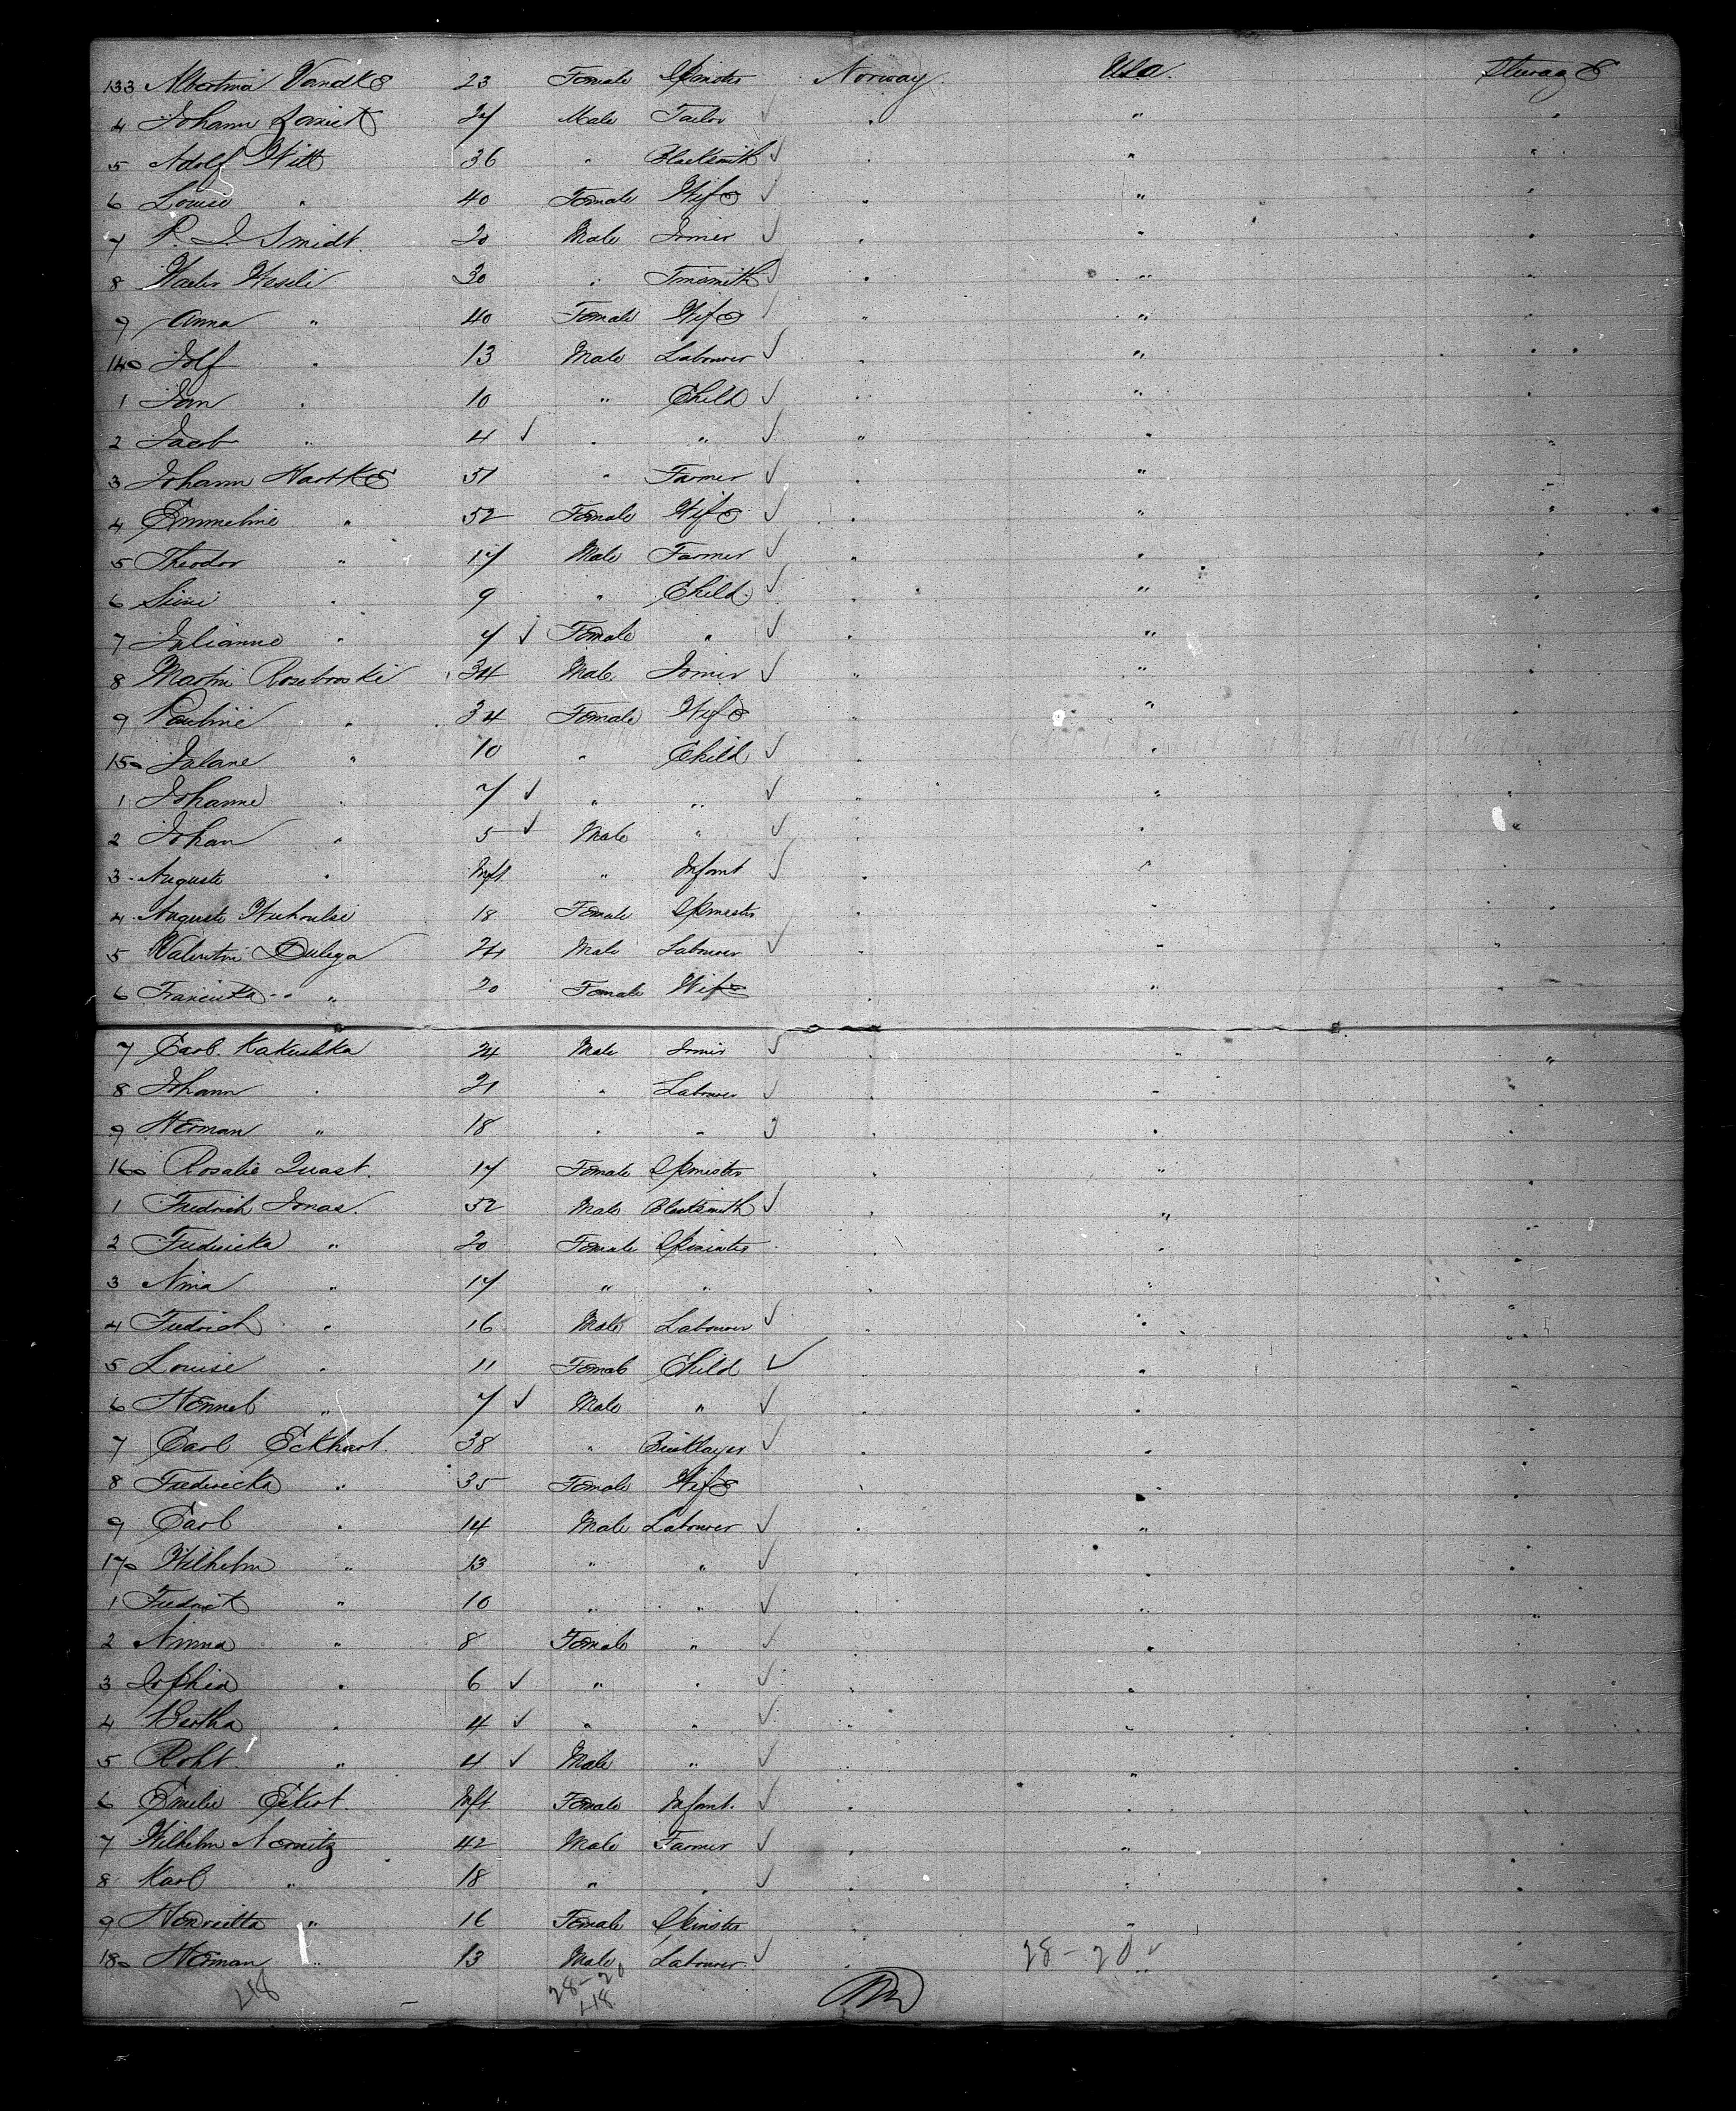 133 Albertina Vandke 23 Female Spinster Norway Usa. Steerage
4 Johann 27 Male Tailor " "
5 Adolf Witt 36 " Blacksmith " " "
6 Louise " 40 Female Wife " " "
7 P. J. Smidt. 20 Male Joiner " " "
8 Weseli 30 " Tinsmith " " "
9 Anna " 40 Female Wife " " "
140 13 Male Labourer " " "
1 Jan " 10 " Child " " "
2 Jacob " 4 " " " " "
3 Johann Hartke 51 " Farmer " "
4 Emmeline " 52 Female Wife " " "
5 Theodor " 17 Male Farmer " " "
6 " 9 " Child " " "
7 Julianne " 7 Female " " "
8 Martin Roseborski 34 Male Joiner " " "
9 Pauline " 34 Female Wife " "
150 " 10 " Child " " "
1 Johanne " 7 " " " " "
2 Johan " 5 Male " " " "
3 Auguste " Inft. " Infant "
4 Auguste 18 Female Spinster " " "
5 Valentin Dulega 24 Male Labourer " " "
6 Franciska " 20 Female Wife " " "
7 Carl Kakuschka 24 Male Joiner " " "
8 Johann " 21 " Labourer " " "
9 Herman " 18 " " " " "
160 Rosalie Quast. 17 Female Spinster " " "
1 Fredrich Jonas. 52 Male Blacksmith " " "
2 Fredericka " 20 Female Spinster " " "
3 Nina " 17 " " " " "
4 Fredrich " 16 Male Labourer " " "
5 Louise " 11 Female Child " "
6 " 7 Male " " " "
7 Carl Eckhart. 38 " Bricklayer " " "
8 Fredericka " 35 Female Wife " " "
9 Carl " 14 Male Labourer " " "
170 Wilhelm " 13 " " " " "
1 " 10 " " " " "
2 Minna " 8 Female " " "
3 Sophia " 6 " " " " "
4 Bertha " 4 " " " " "
5 Robt. " 4 Male " " "
6 Emelie Eckert. Inft. Female Infant. " " "
7 Wilhelm Nornitz 42 Male Farmer " " "
8 Karl " 18 " " " " "
9 Henrietta " 16 Female Spinster " "
180 Herman " 13 Male Labourer " 28-20 "
48 28-20
48